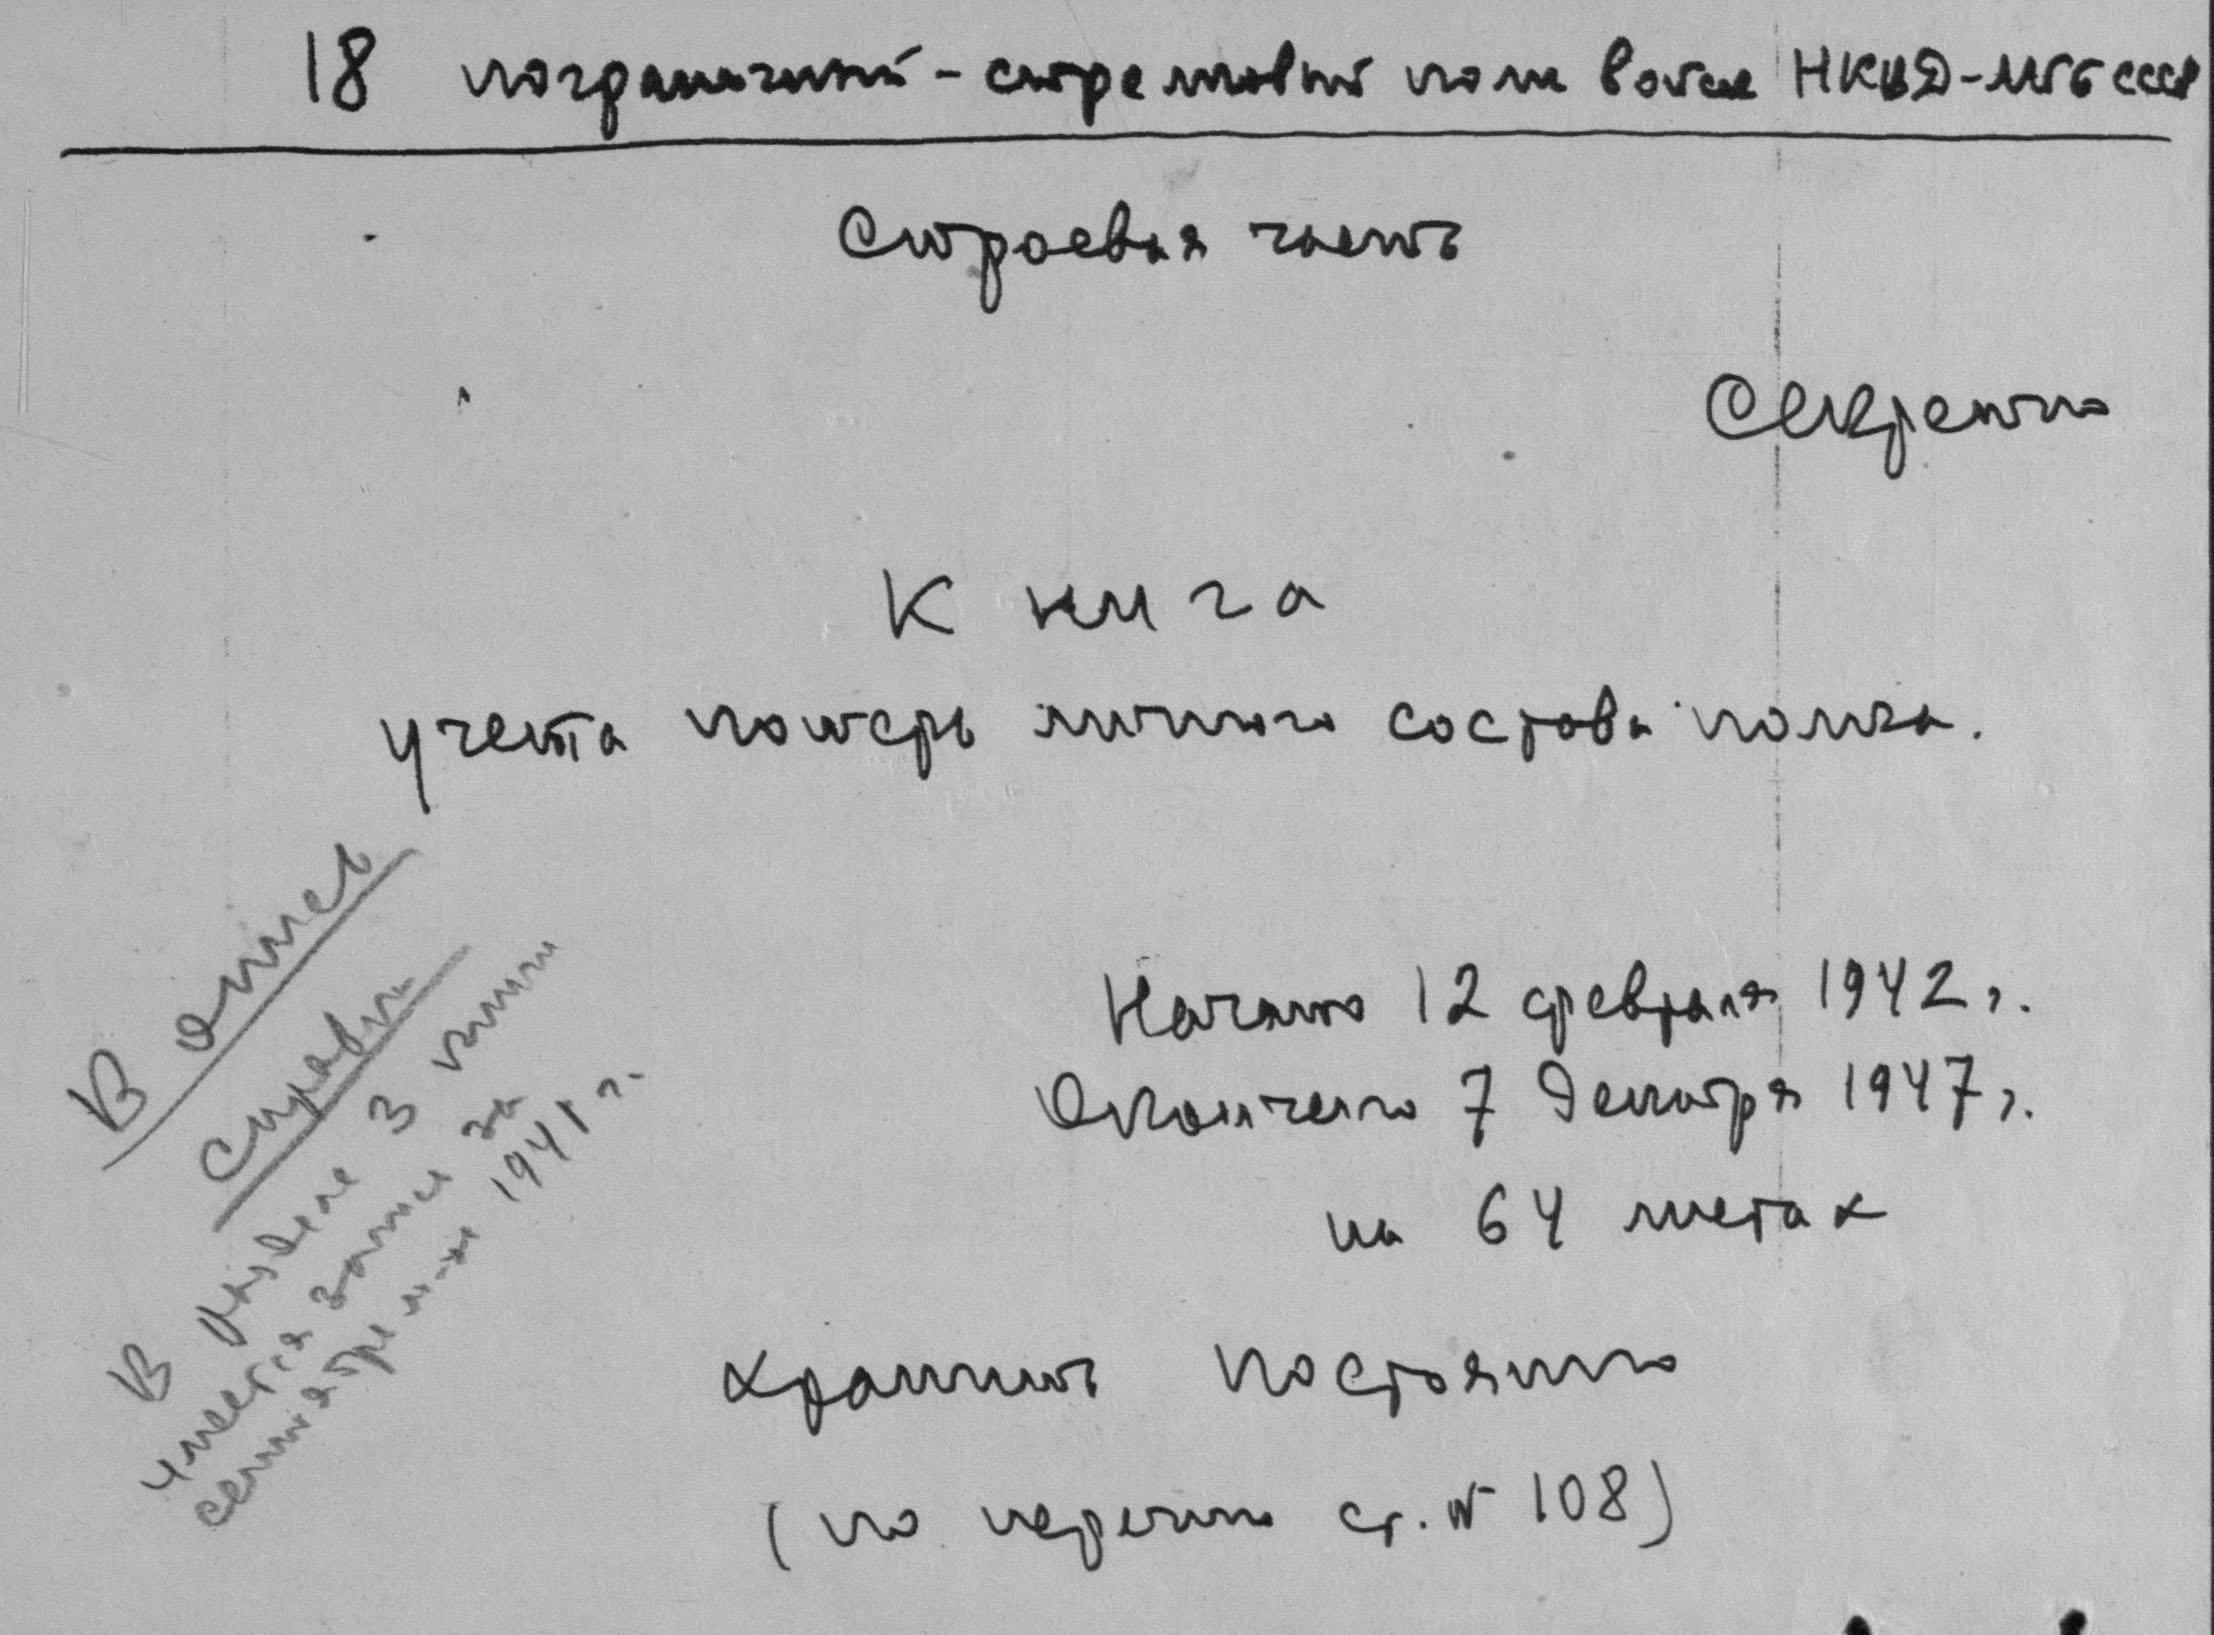 18 пограничный-стрелковый полк войск НКВД-МГБ СССР
Строевая часть
Секретно
Книга
учета потерь личного состава полка.
Начато 12 февраля 1942 г.
Окончено 7 декабря 1947 г.
на 64 листах
Хранить постоянно
(по перечню ст. № 108)
В опись
Справка
В разделе 3 книги
имеется запись за
сентябрь м-ц 1941 г.